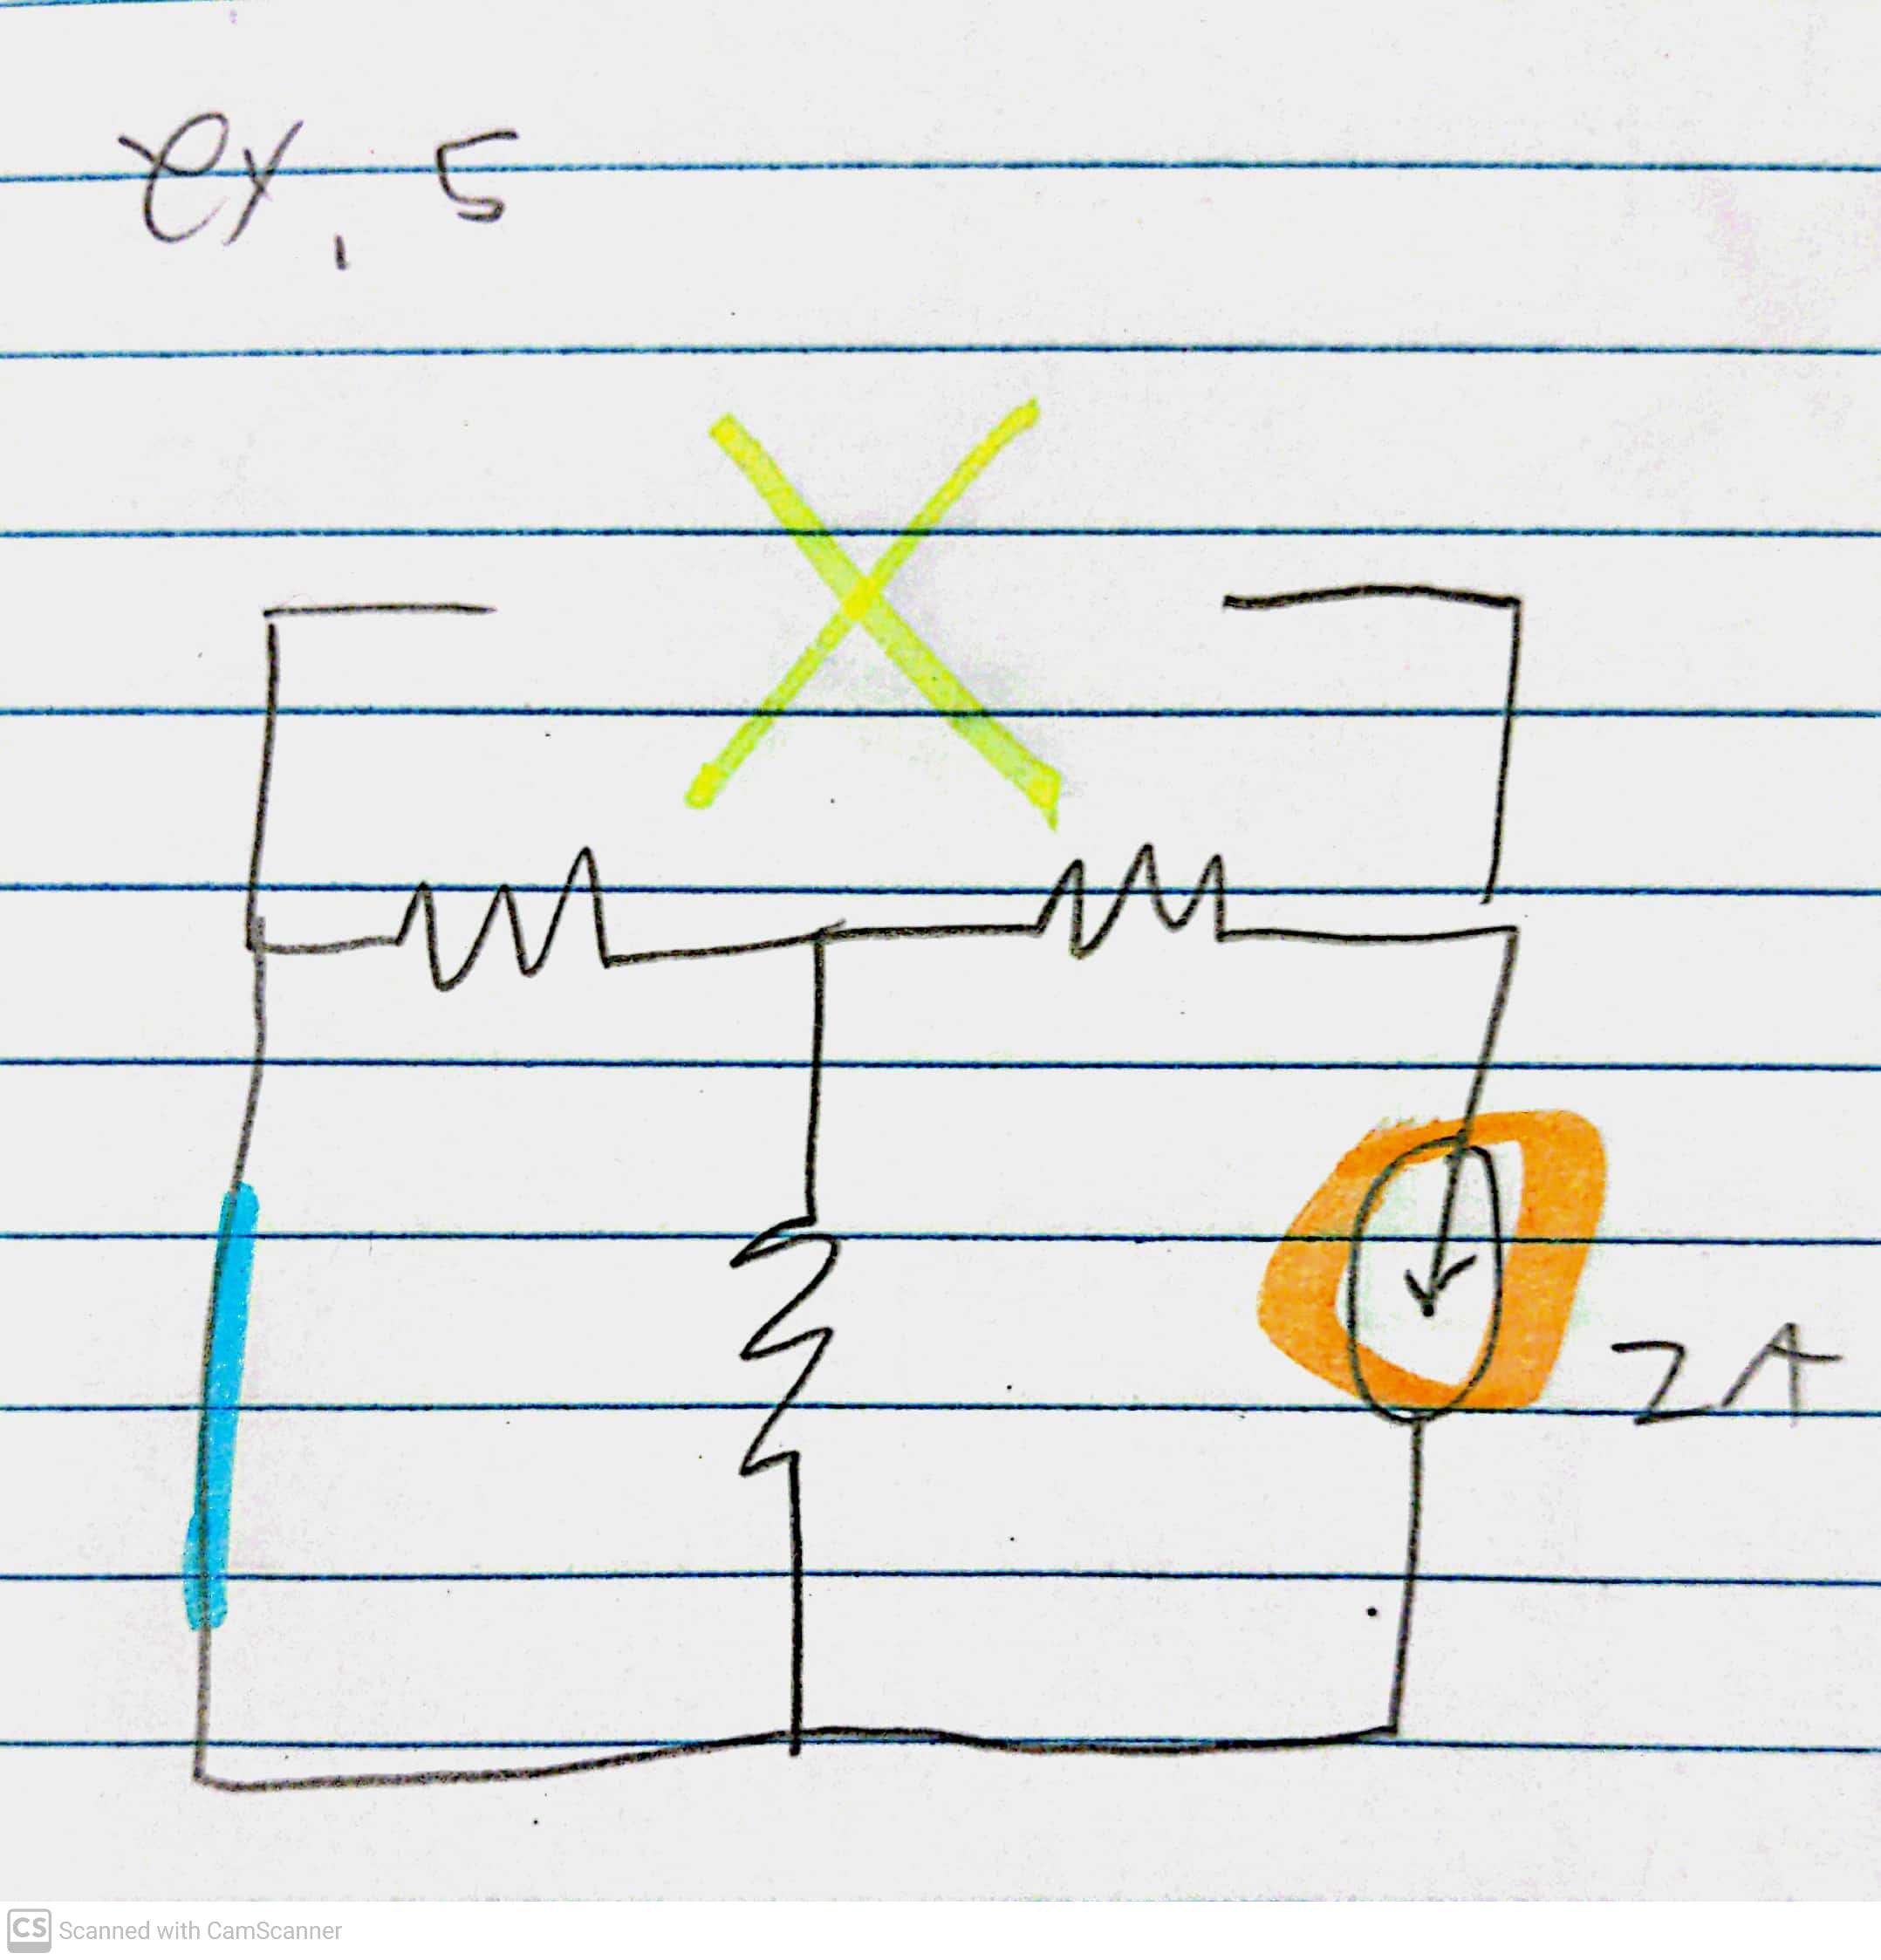 ex. 5
2A
CS Scanned with CamScanner